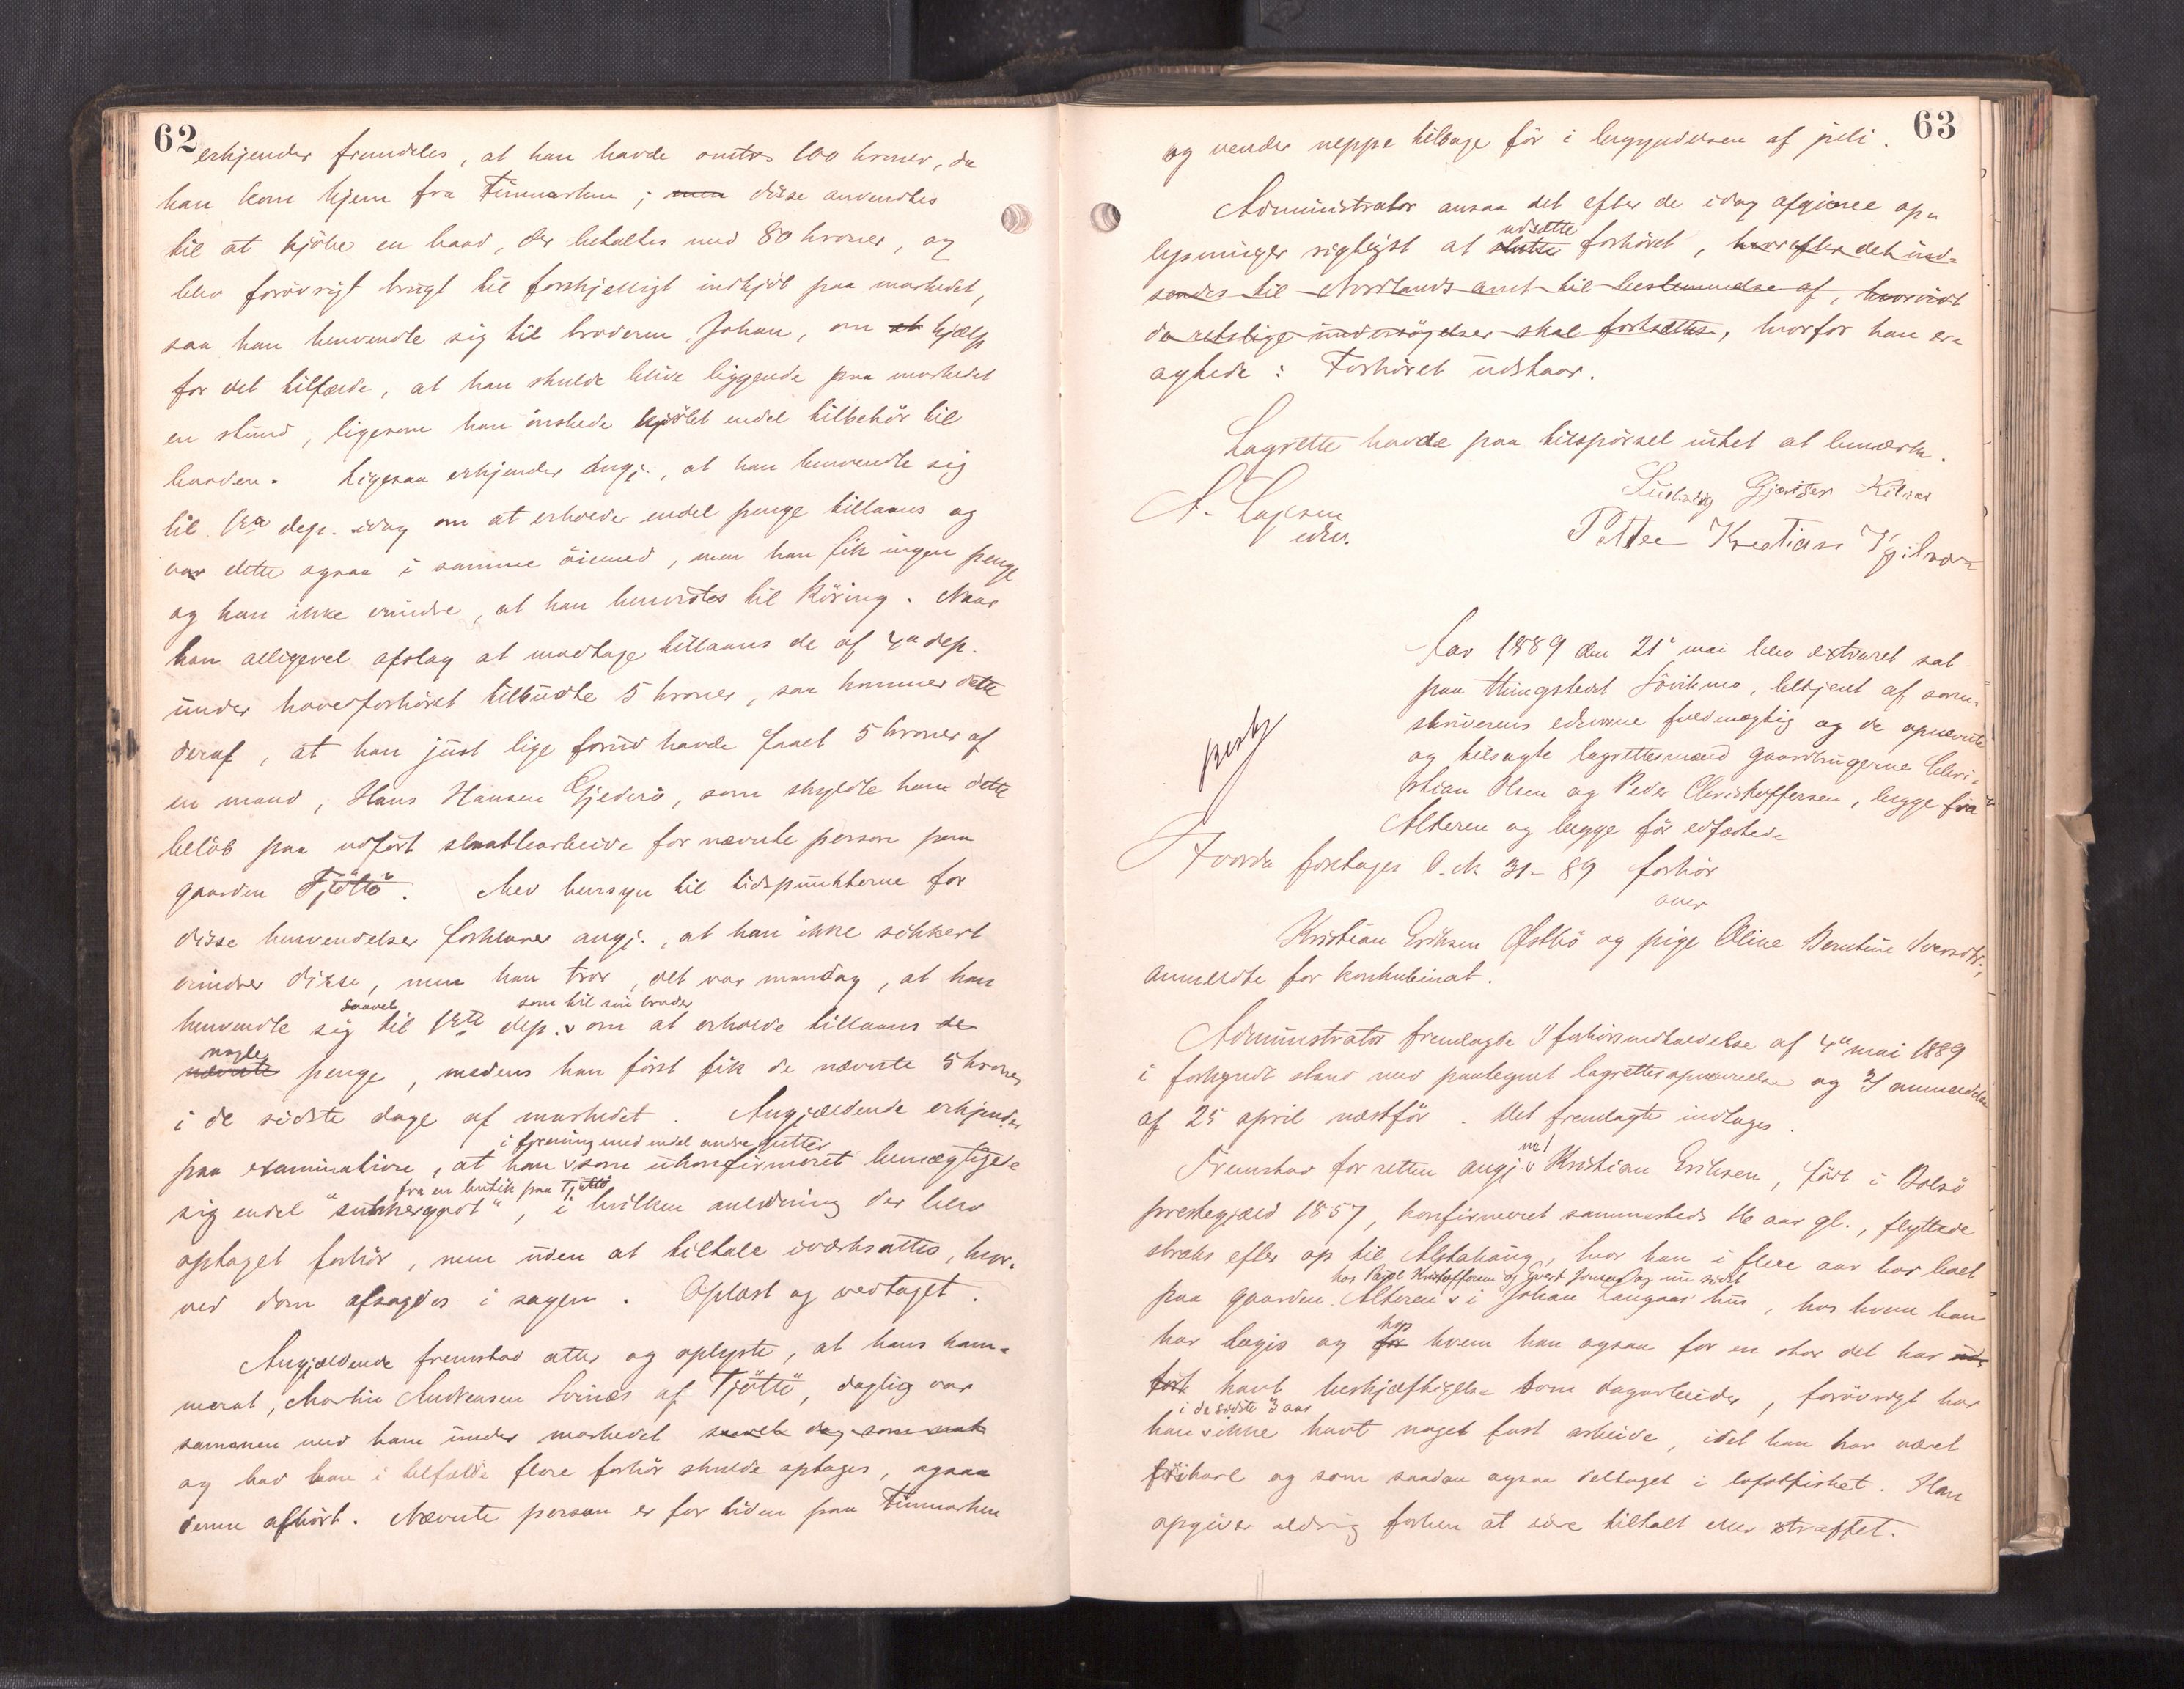 62
erkjender fremdeles, at han havde omtr. 100 kroner, da
han kom hjem fra Finmarken; men disse anvendtes
til at kjöbe en baad, der betaltes med 80 kroner, og
blev forövrigt brugt til forskjelligt indkjöb paa markedet,
saa han henvendte sig til broderen Johan, om at hjælp
for det tilfælde, at han skulde blive liggende paa markedet
en stund, ligesom han önskede kjöbt endel tilbehör til
baaden. Ligesaa erkjender angj., at han henvendte sig
til 1ste dep. idag om at erholde endel penge tillaans og
var dette ogsaa i samme öiemed, men han fik ingen penge
og kan ikke erindre, at han henvistes til Röring. Naar
han alligevel afslog at modtage tillaans de af 4de dep.
under hovedforhöret tilbudte 5 kroner, saa kommer dette
deraf, at han just lige forud havde faaet 5 kroner af
en mand, Hans Hansen Gjederö, som skyldte ham dette
belöb paa udfört slaattearbeide for nævnte person paa
gaarden Tjöttö. Med hensyn til tidspunkterne for
disse henvendelser forklarer angj., at han ikke sikkert
erindrer disse, men han tror, det var mandag, at han
saavel som til sin broder
henvendte sig til 1ste dep. v om at erholde tillaans de
nogle
nævnte penge, medens han först fik de nævnte 5 kroner
i de sidste dage af markedet. Angjældende erkjender
i forening med endel andre gutter
paa examination, at han v som ukonfirmeret bemægtigede
fra en butik paa Tjöttö
sig endel "sukkergodt", i hvilken anledning der blev
optaget forhör, men uden at tiltale iværksattes, hvor-
ved dom afsagdes i sagen. Oplæst og vedtaget.
Angjældende fremstod atter og oplyste, at hans kam-
merat, Martin Andreasen Svinæs af Tjöttö, daglig var
sammen med ham under markedet saavel dag som nat
og bad ham i tilfælde flere forhör skulde optages, ogsaa
denne afhört. Nævnte person er for tiden paa Finmarken
63
og vender neppe tilbage för i begyndelsen af juli.
Administrator ansaa det efter de idag afgivne op-
udsætte
lysninger rigtigst at slutte forhöret, hvorefter det ind-
sendes til Nordlands amt til bestemmelse af, hvorvidt
de retslige undersögelser skal fortsættes, hvorfor han er-
agtede: Forhöret udstaar.
Lagrette havde paa tilspörsel intet at bemærke.
Ludvig Gjærtsen Kilvær
edsv.
Petter Kristian Kjilvær
Aar 1889 den 21de mai blev extraret sat
paa thingstedet Sövikmo, betjent af soren-
skriverens edsvorne fuldmægtig og de opnævnte
og tilsagte lagrettesmænd gaardbrugerne Chri-
stian Olsen og Peder Christoffersen, begge fra
Alteren og begge för edfæstede
Hvorda foretoges O. N. 31-89 forhör
over
Kristian Eriksen Östbö og pige Oline Berntine Iversdtr.,
anmeldte for konkubinat.
Administrator fremlagde 1 forhörsmeddelelse af 4de mai 1889
i forkyndt stand med paategnet lagrettesopnævnelse og 2 anmeldelse
af 25 april næstför. Det fremlagte indtages.
no 1
Fremstod for retten angj. v Kristian Eriksen, födt i Bolsö
prestegjæld 1857, konfirmeret sammesteds 16 aar gl., flyttede
straks efter op til Alstahaug, hvor han i flere aar har boet
hos Peder Kristoffersen og Evert Jonsen og nu sidst
paa gaarden Alteren v i Johan Langaas' hus, hos hvem han
hos
har logis og for hvem han ogsaa for en stor del har ud-
fört havt beskjæftigelse som dagarbeider, forövrigt har
i de sidste 3 aar
han v ikke havt noget fast arbeide, idet han har været
frikarl og som saadan ogsaa deltaget i lofotfisket. Han
opgiver aldrig forhen at være tiltalt eller straffet.